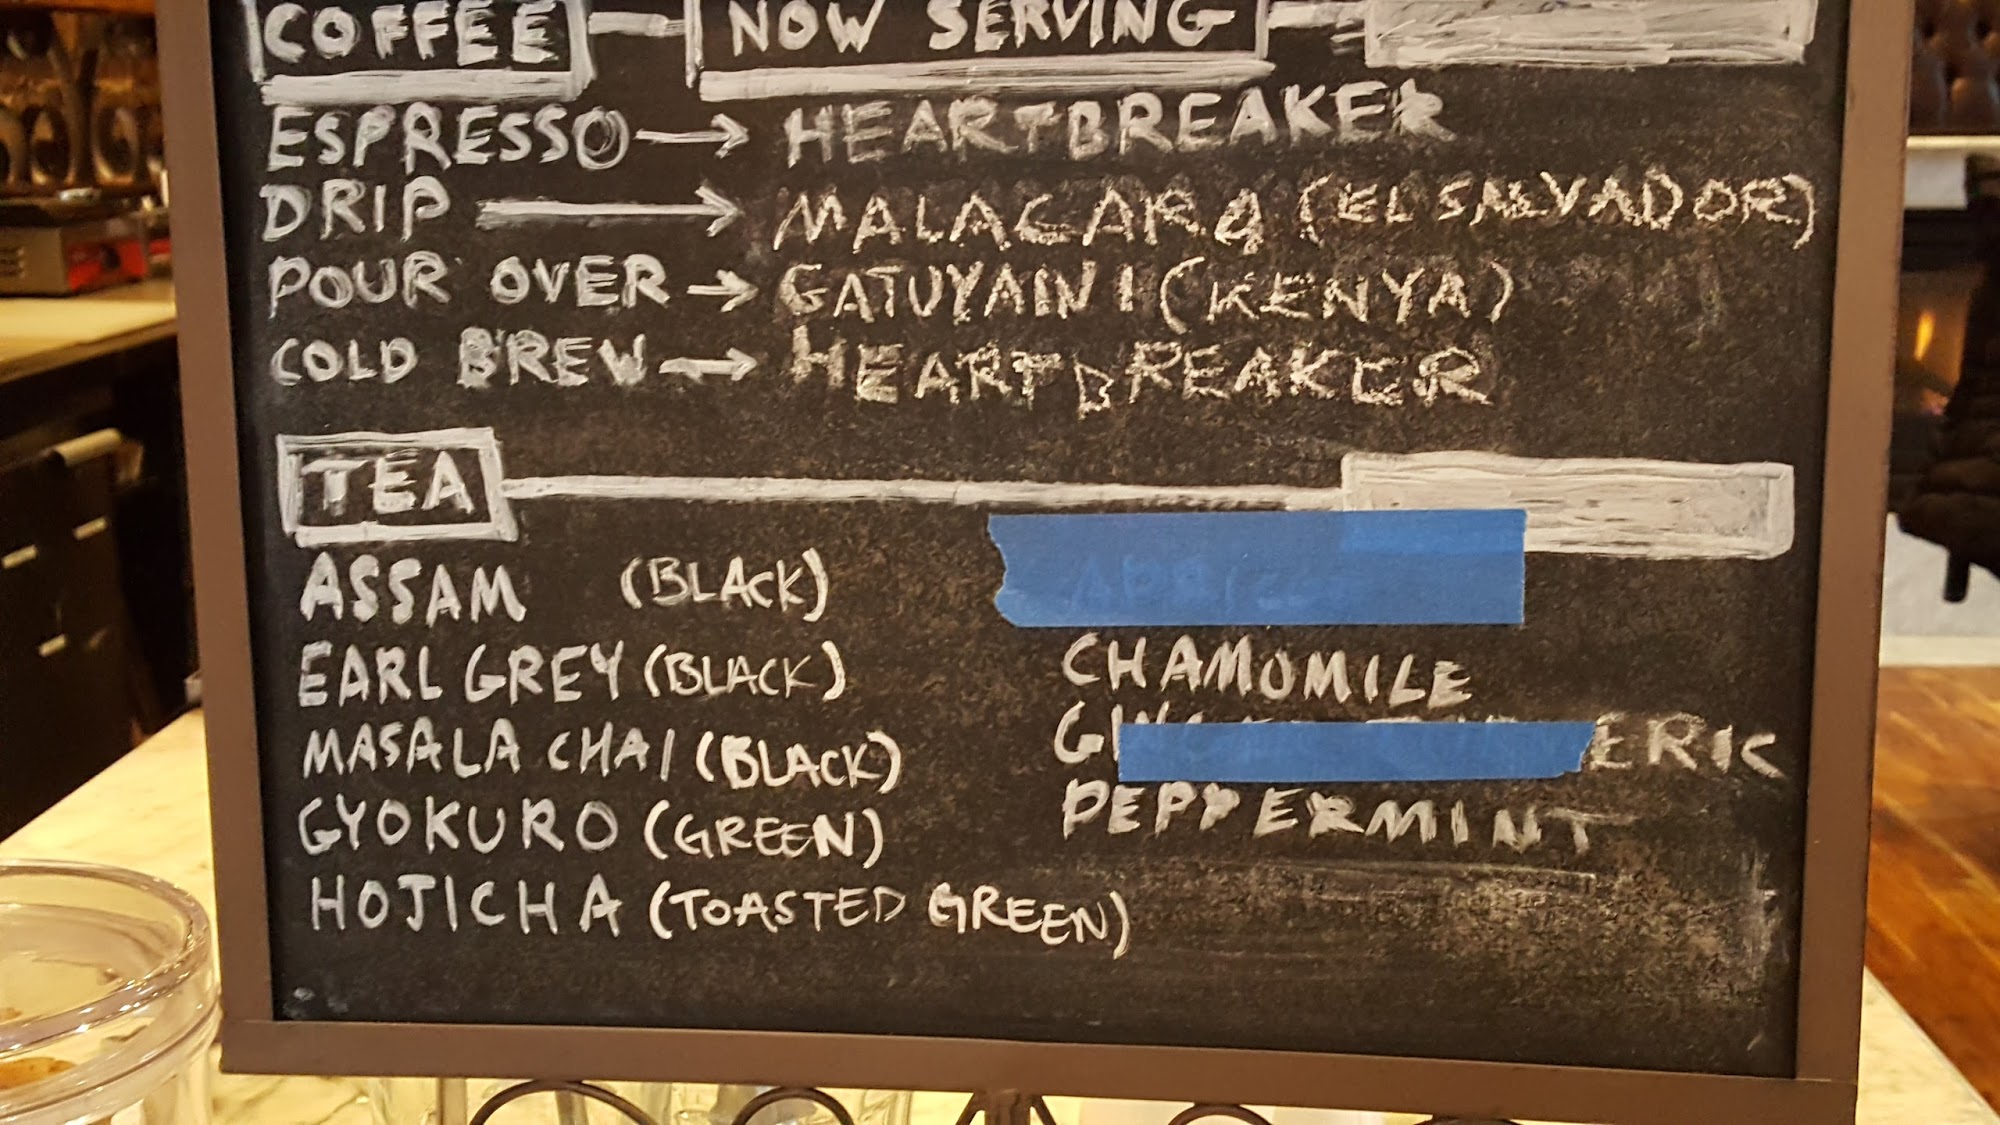 COFFEE NOW SERVING
ESPRESSO → HEARTBREAKER
DRIP → MALACARA (EL SALVADOR)
POUR OVER → GATUYAINI (KENYA)
COLD BREW → HEARTBREAKER
TEA
ASSAM (BLACK)
EARL GREY (BLACK)
MASALA CHAI (BLACK)
GYOKURO (GREEN)
HOJICHA (TOASTED GREEN)
CHAMOMILE
PEPPERMINT